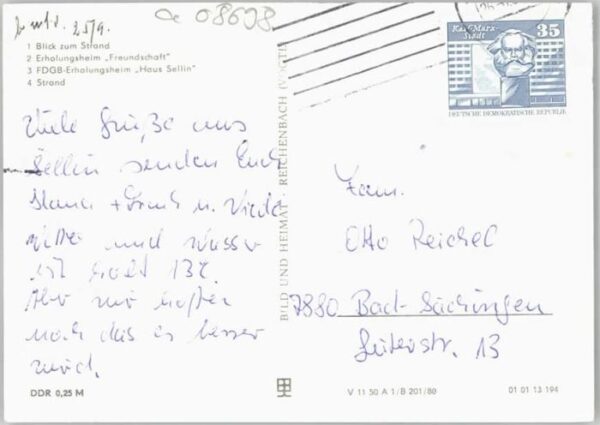 25/9.
08698
1 Blick zum Strand
2 Erholungsheim „Freundschaft"
3 FDGB-Erholungsheim „Haus Sellin"
4 Strand
Viele Grüße aus
Sellin senden Euch
und Wasser
ist kalt 13°.
Aber wir hoffen
noch das es besser
wird.
DDR 0,25 M
BILD UND HEIMAT · REICHENBACH (VOGTL)
Karl-Marx-
Stadt
35
DEUTSCHE DEMOKRATISCHE REPUBLIK
Fam.
Otto Reichel
7880 Bad-Säckingen
13
V 11 50 A 1/B 201/80
01 01 13 194